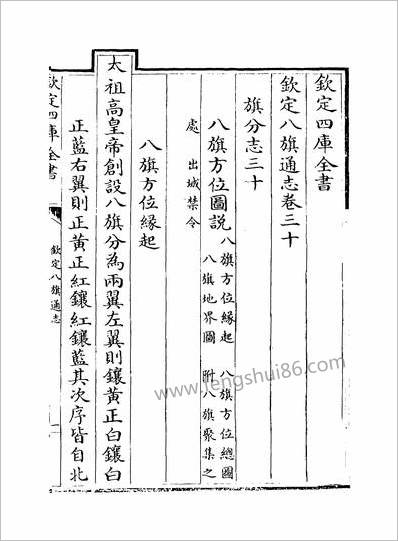 欽定四庫全書
欽定八旗通志卷三十
旗分志三十
八旗方位圖說
八旗方位緣起 八旗方位總圖
八旗地界圖 附八旗聚集之
處 出城禁令
八旗方位緣起
太祖高皇帝創設八旗分為兩翼左翼則鑲黃正白鑲白
正藍右翼則正黃正紅鑲紅鑲藍其次序皆自北
欽定四庫全書
欽定八旗通志
一
www.fengshui86.com